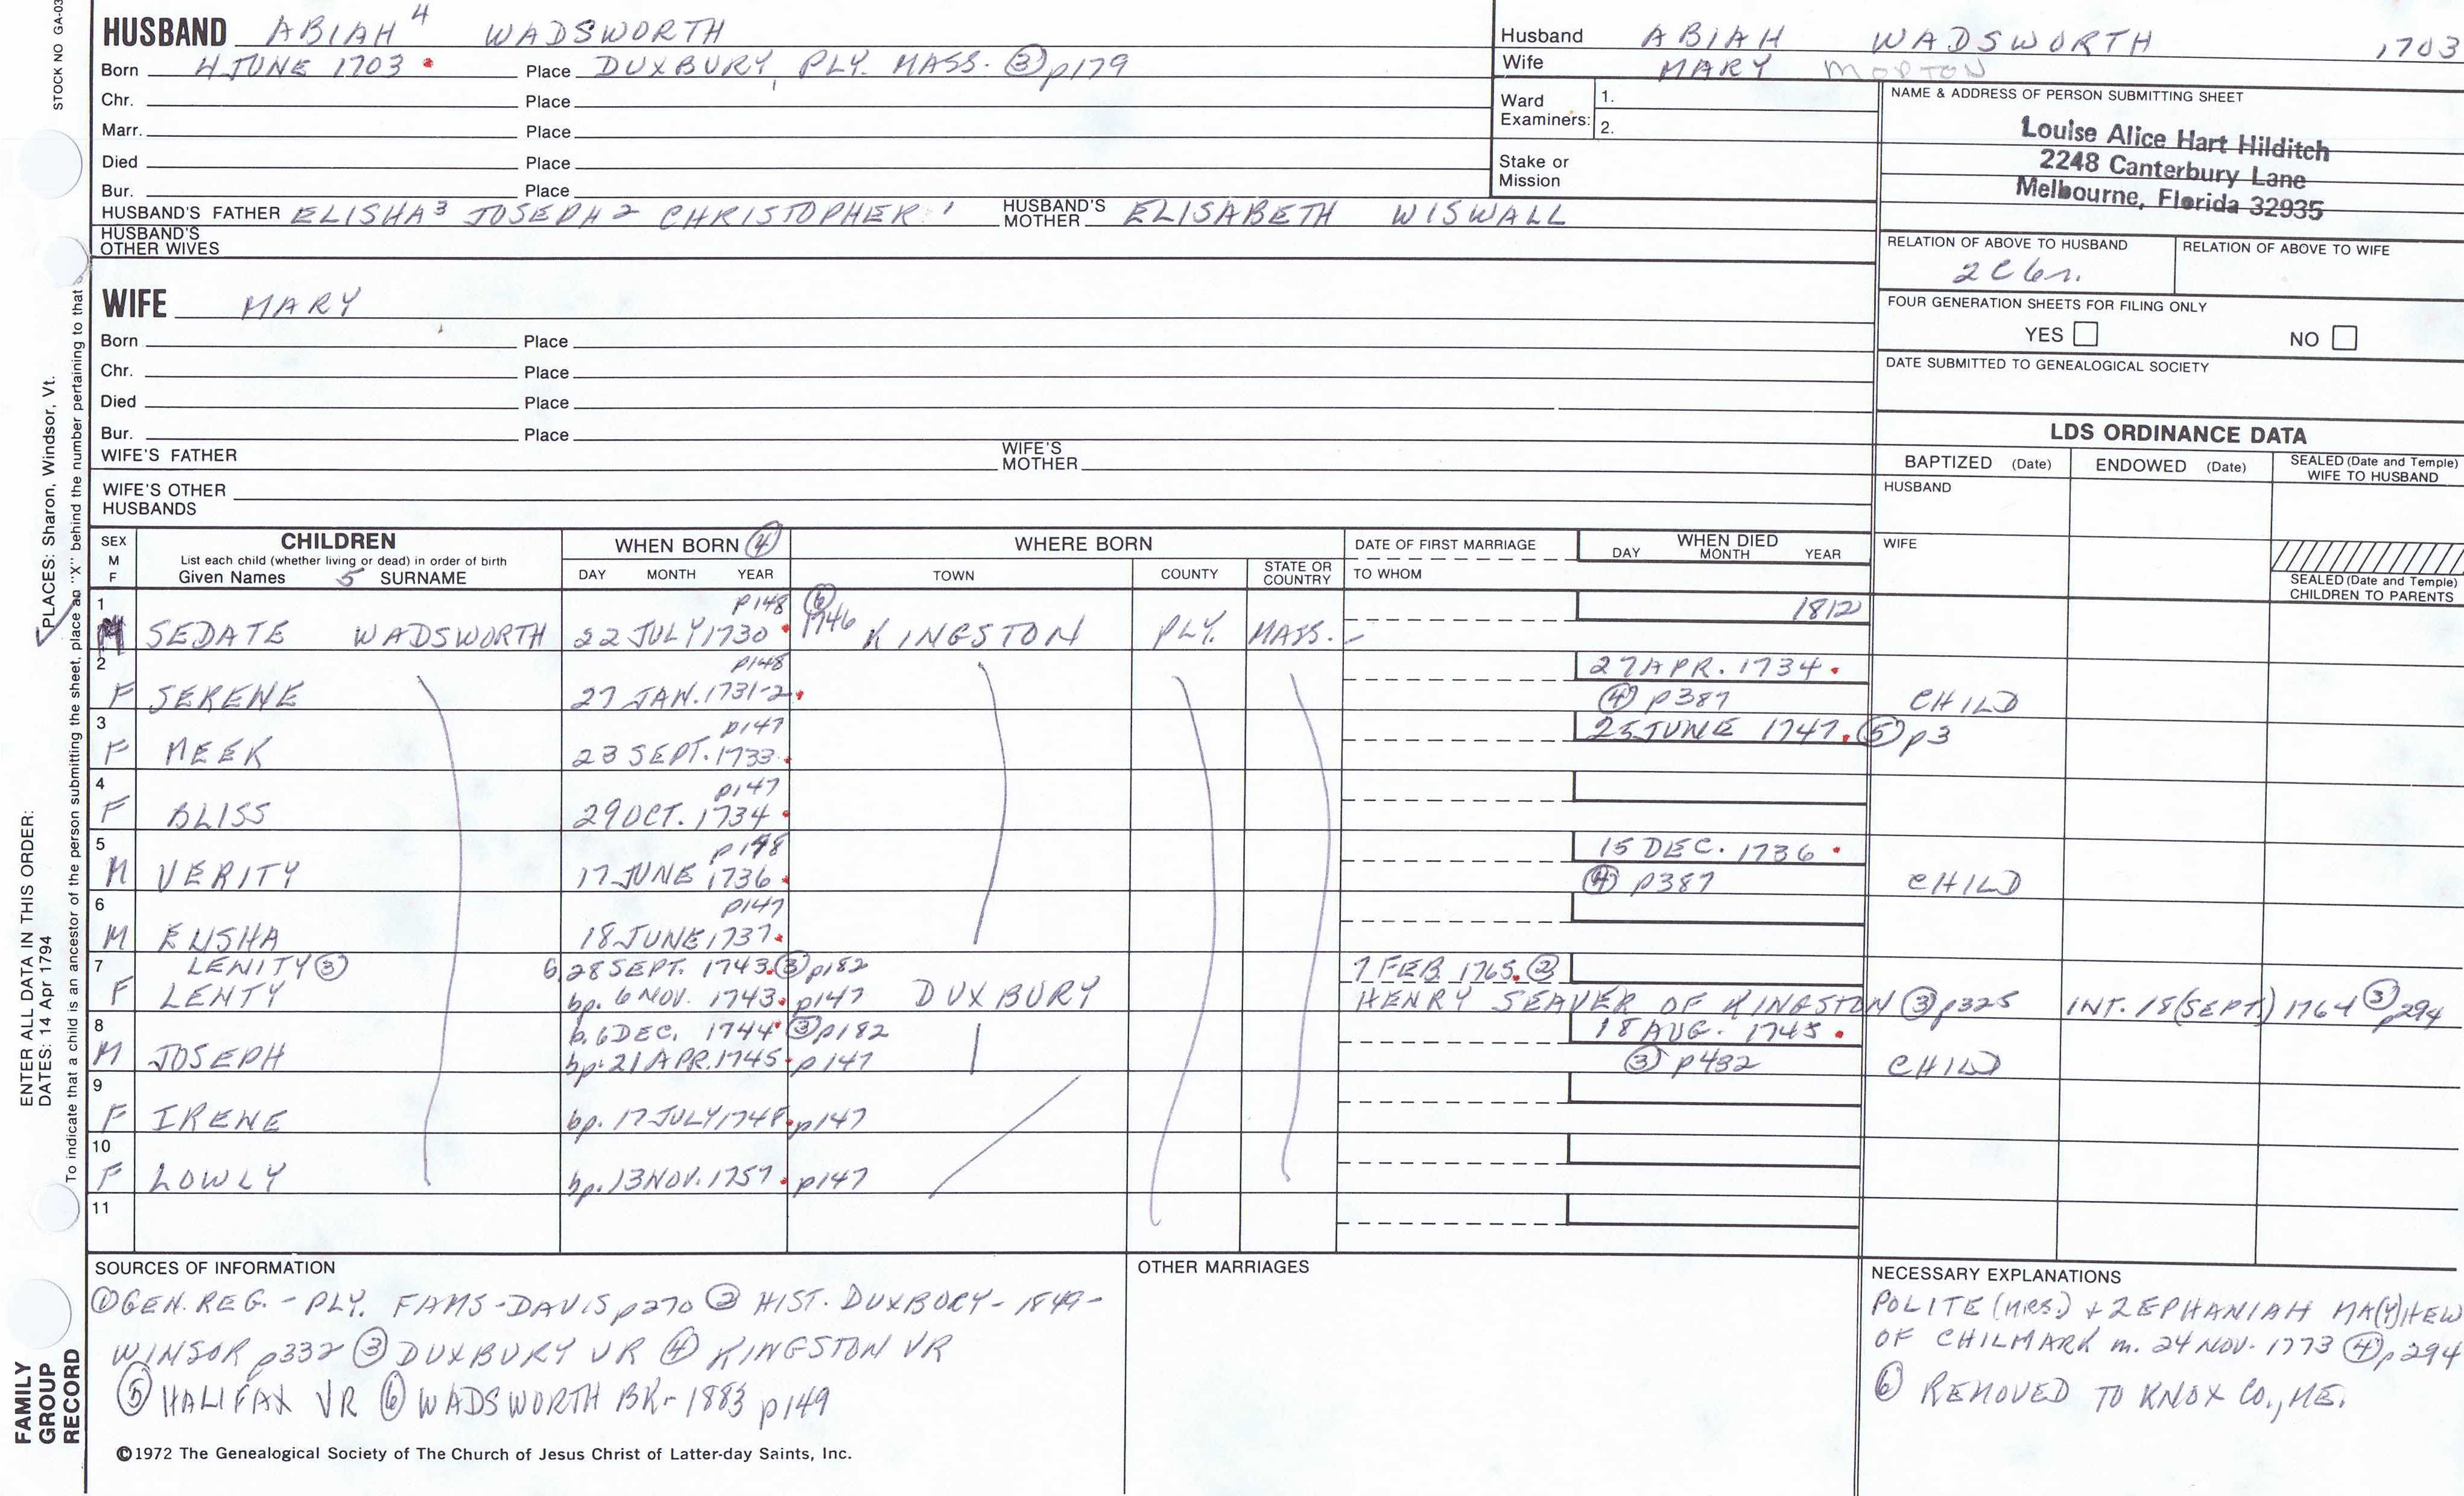 STOCK NO GA-03
HUSBAND ABIAH 4 WADSWORTH
Born 4 JUNE 1703 Place DUXBURY, PLY. MASS. ③ p179
Chr. Place
Marr. Place
Died Place
Bur. Place
HUSBAND'S FATHER ELISHA 3 JOSEPH 2 CHRISTOPHER 1 HUSBAND'S MOTHER ELISABETH WISWALL
HUSBAND'S OTHER WIVES
WIFE MARY
Born Place
Chr. Place
Died Place
Bur. Place
WIFE'S FATHER WIFE'S MOTHER
WIFE'S OTHER HUSBANDS
Husband ABIAH WADSWORTH 1703
Wife MARY MORTON
Ward Examiners: 1. 2.
Stake or Mission
NAME & ADDRESS OF PERSON SUBMITTING SHEET
Louise Alice Hart Hilditch
2248 Canterbury Lane
Melbourne, Florida 32935
RELATION OF ABOVE TO HUSBAND RELATION OF ABOVE TO WIFE
2C6r.
FOUR GENERATION SHEETS FOR FILING ONLY
YES NO
DATE SUBMITTED TO GENEALOGICAL SOCIETY
LDS ORDINANCE DATA
BAPTIZED (Date) ENDOWED (Date) SEALED (Date and Temple) WIFE TO HUSBAND
HUSBAND
WIFE
SEALED (Date and Temple) CHILDREN TO PARENTS
SEX M F
CHILDREN
List each child (whether living or dead) in order of birth
Given Names 5 SURNAME
WHEN BORN ④
DAY MONTH YEAR
WHERE BORN
TOWN COUNTY STATE OR COUNTRY
DATE OF FIRST MARRIAGE
TO WHOM
WHEN DIED
DAY MONTH YEAR
1 p148 ⑥ 1812
M SEDATE WADSWORTH 22 JULY 1730 1746 KINGSTON PLY. MASS.
2 p148 27 APR. 1734
F SERENE 27 JAN. 1731-2 ④ p387 CHILD
3 p147 25 JUNE 1747 ⑤ p3
F MEEK 23 SEPT. 1733
4 p147
F BLISS 29 OCT. 1734
5 p148 15 DEC. 1736
M VERITY 17 JUNE 1736 ④ p387 CHILD
6 p147
M ELISHA 18 JUNE 1737
7 LENITY ③ b. 28 SEPT. 1743 ③ p182 7 FEB. 1765 ②
F LENTY bp. 6 NOV. 1743 p147 DUXBURY HENRY SEAVER OF KINGSTON ③ p325 INT. 18 (SEPT.) 1764 ③ p294
8 b. 6 DEC. 1744 ③ p182 18 AUG. 1745
M JOSEPH bp. 21 APR. 1745 p147 ③ p432 CHILD
9
F IRENE bp. 17 JULY 1748 p147
10
F LOWLY bp. 13 NOV. 1757 p147
11
SOURCES OF INFORMATION
① GEN. REG. - PLY. FAMS - DAVIS p270 ② HIST. DUXBURY - 1849 -
WINSOR p332 ③ DUXBURY VR ④ KINGSTON VR
⑤ HALIFAX VR ⑥ WADSWORTH BK - 1883 p149
©1972 The Genealogical Society of The Church of Jesus Christ of Latter-day Saints, Inc.
OTHER MARRIAGES
NECESSARY EXPLANATIONS
POLITE (MRS.) + ZEPHANIAH MA(Y)HEW
OF CHILMARK m. 24 NOV. 1773 ④ p294
⑥ REMOVED TO KNOX CO., ME.
ENTER ALL DATA IN THIS ORDER:
DATES: 14 Apr 1794
PLACES: Sharon, Windsor, Vt.
To indicate that a child is an ancestor of the person submitting the sheet, place an "X" behind the number pertaining to that
FAMILY
GROUP
RECORD